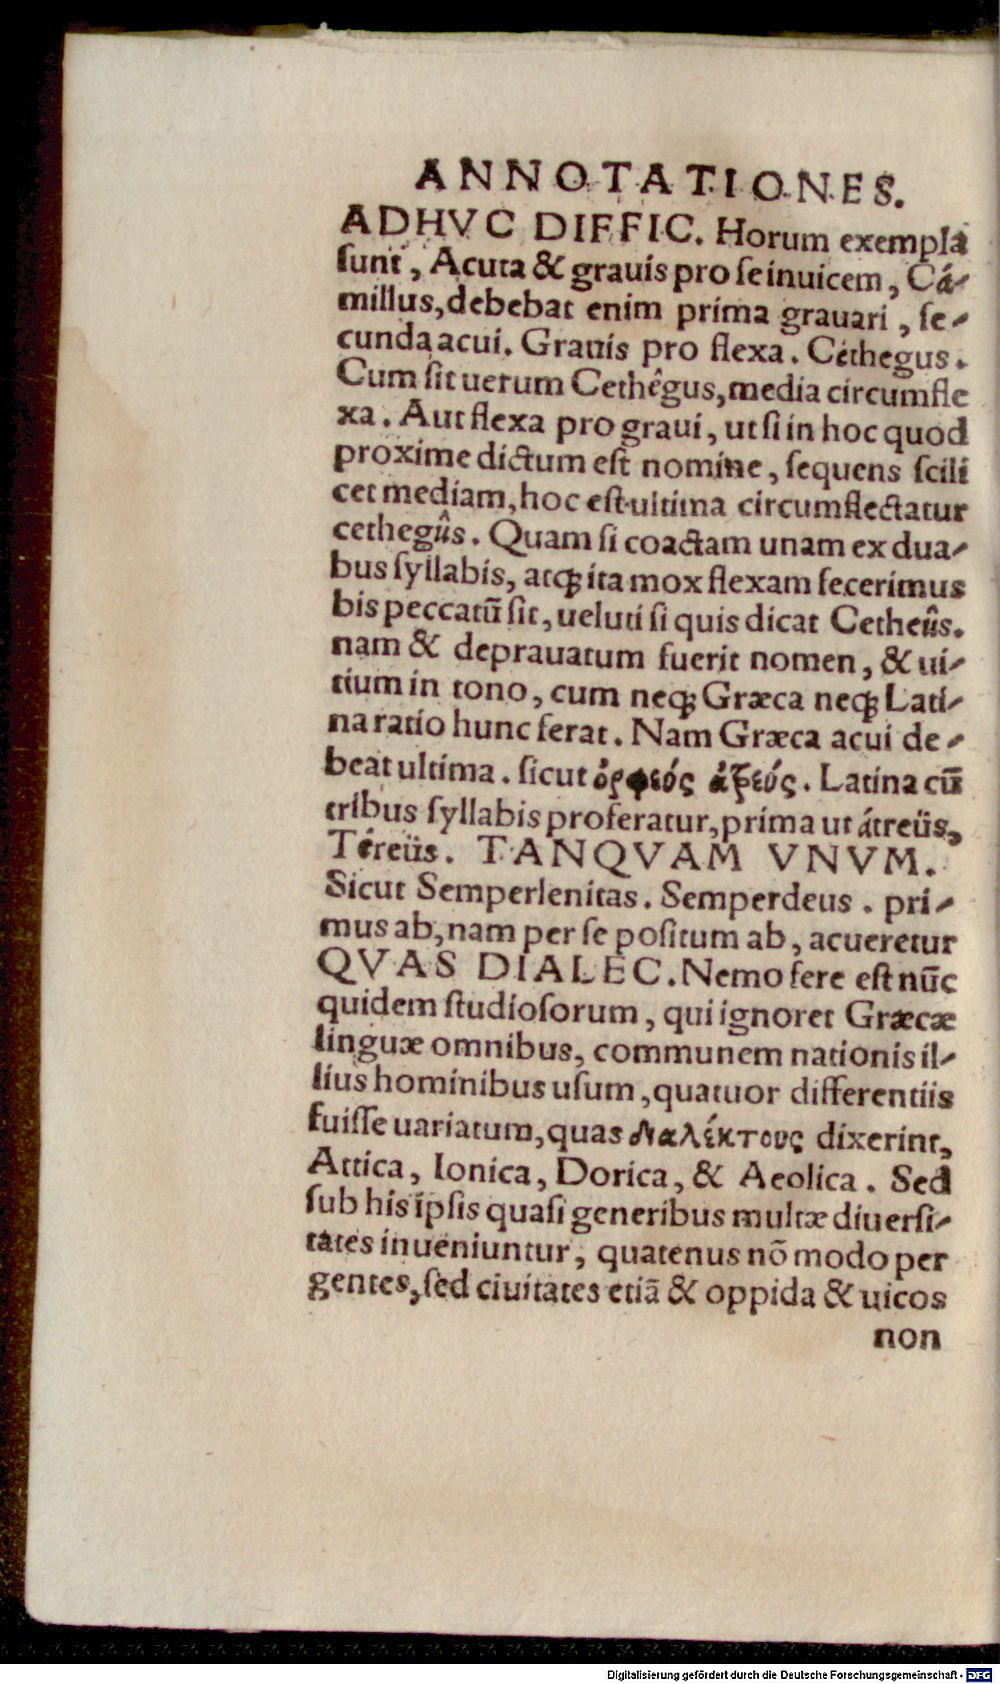 ANNOTATIONES.
ADHVC DIFFIC. Horum exempla
ſunt, Acuta & grauis pro ſeinuicem, Cá-
millus, debebat enim prima grauari, ſe-
cunda acui. Grauis pro flexa. Céthegus.
Cum ſit uerum Cethêgus, media circumfle
xa. Aut flexa pro graui, ut ſi in hoc quod
proxime dictum eſt nomine, ſequens ſcili
cet mediam, hoc eſt ultima circumflectatur
cethegûs. Quam ſi coactam unam ex dua-
bus ſyllabis, atq; ita mox flexam fecerimus
bis peccatū ſit, ueluti ſi quis dicat Cetheûs.
nam & deprauatum fuerit nomen, & ui-
tium in tono, cum neq; Græca neq; Lati-
na ratio hunc ferat. Nam Græca acui de-
beat ultima. ſicut ὀρφεύς ἀτρεύς. Latina cū
tribus ſyllabis proferatur, prima ut átreüs,
Téreüs. TANQVAM VNVM.
Sicut Semperlenitas. Semperdeus. pri-
mus ab, nam per ſe poſitum ab, acueretur
QVAS DIALEC. Nemo fere eſt nūc
quidem ſtudioſorum, qui ignoret Græcæ
linguæ omnibus, communem nationis il-
lius hominibus uſum, quatuor differentiis
fuiſſe uariatum, quas διαλέκτους dixerint,
Attica, Ionica, Dorica, & Aeolica. Sed
ſub his ipſis quaſi generibus multæ diuerſi-
tates inueniuntur, quatenus nō modo per
gentes, ſed ciuitates etiā & oppida & uicos
non
Digitalisierung gefördert durch die Deutsche Forschungsgemeinschaft - DFG